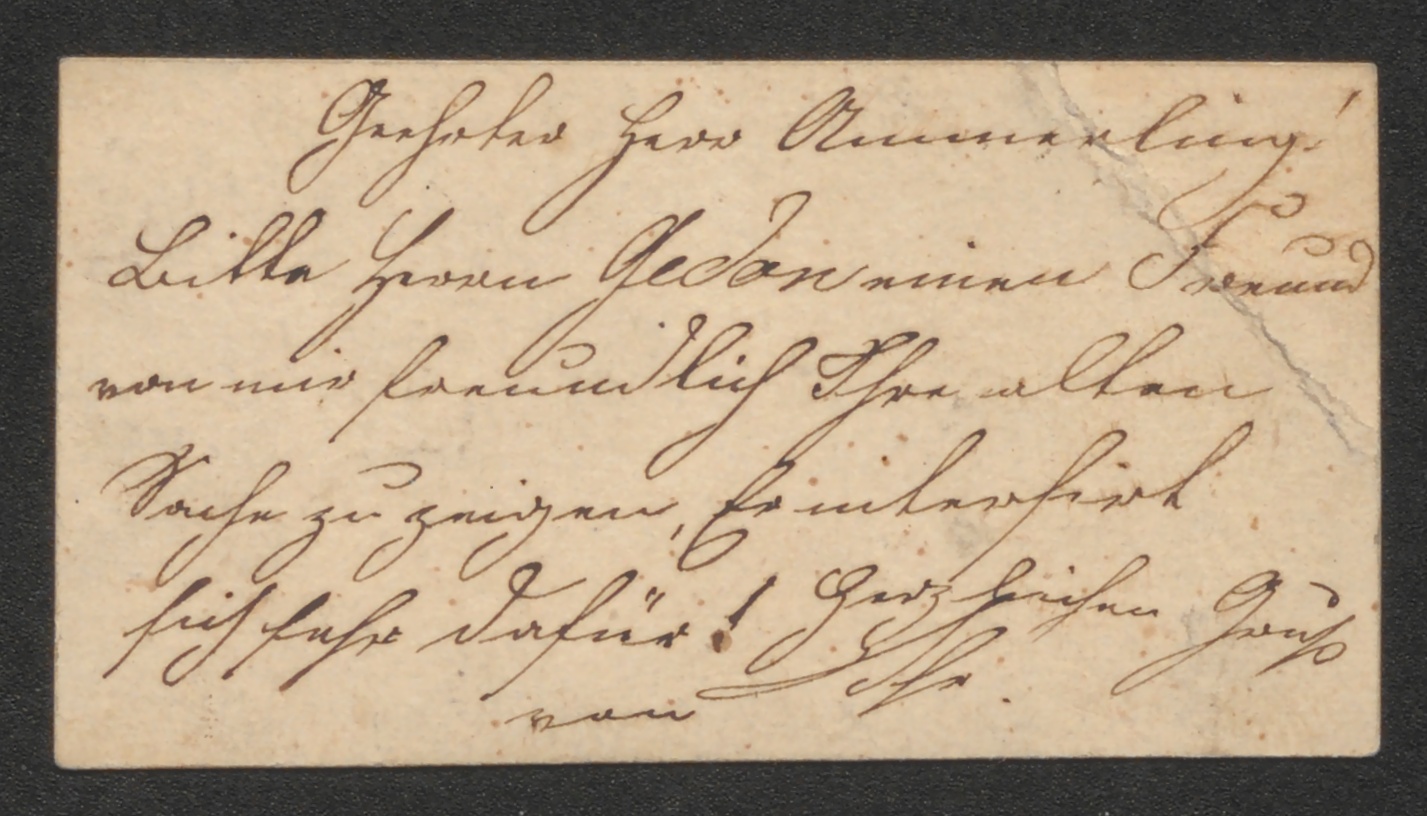 Geehrter Herr Ammerling!
Bitte Herrn Gedon einen Freund
von mir freundlich Ihre alten
Sache zu zeigen, Er intersirt
sich sehr dafür! Herzlichen Gruß
von Ihr.